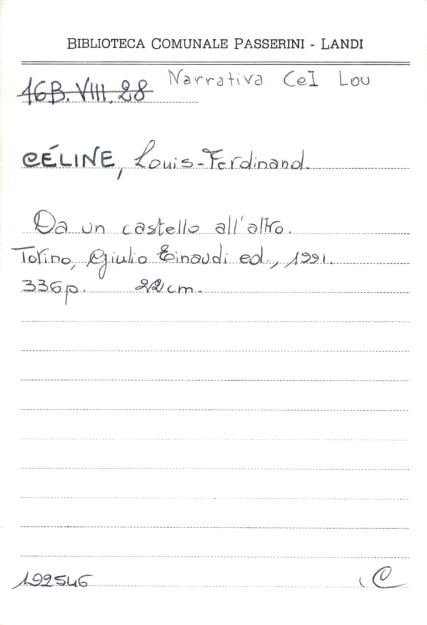 BIBLIOTECA COMUNALE PASSERINI - LANDI
16B.VIII.28 Narrativa Cel Lou
CÉLINE, Louis-Ferdinand.
Da un castello all'altro.
Torino, Giulio Einaudi ed., 1991.
336p. 22cm.
192546 C